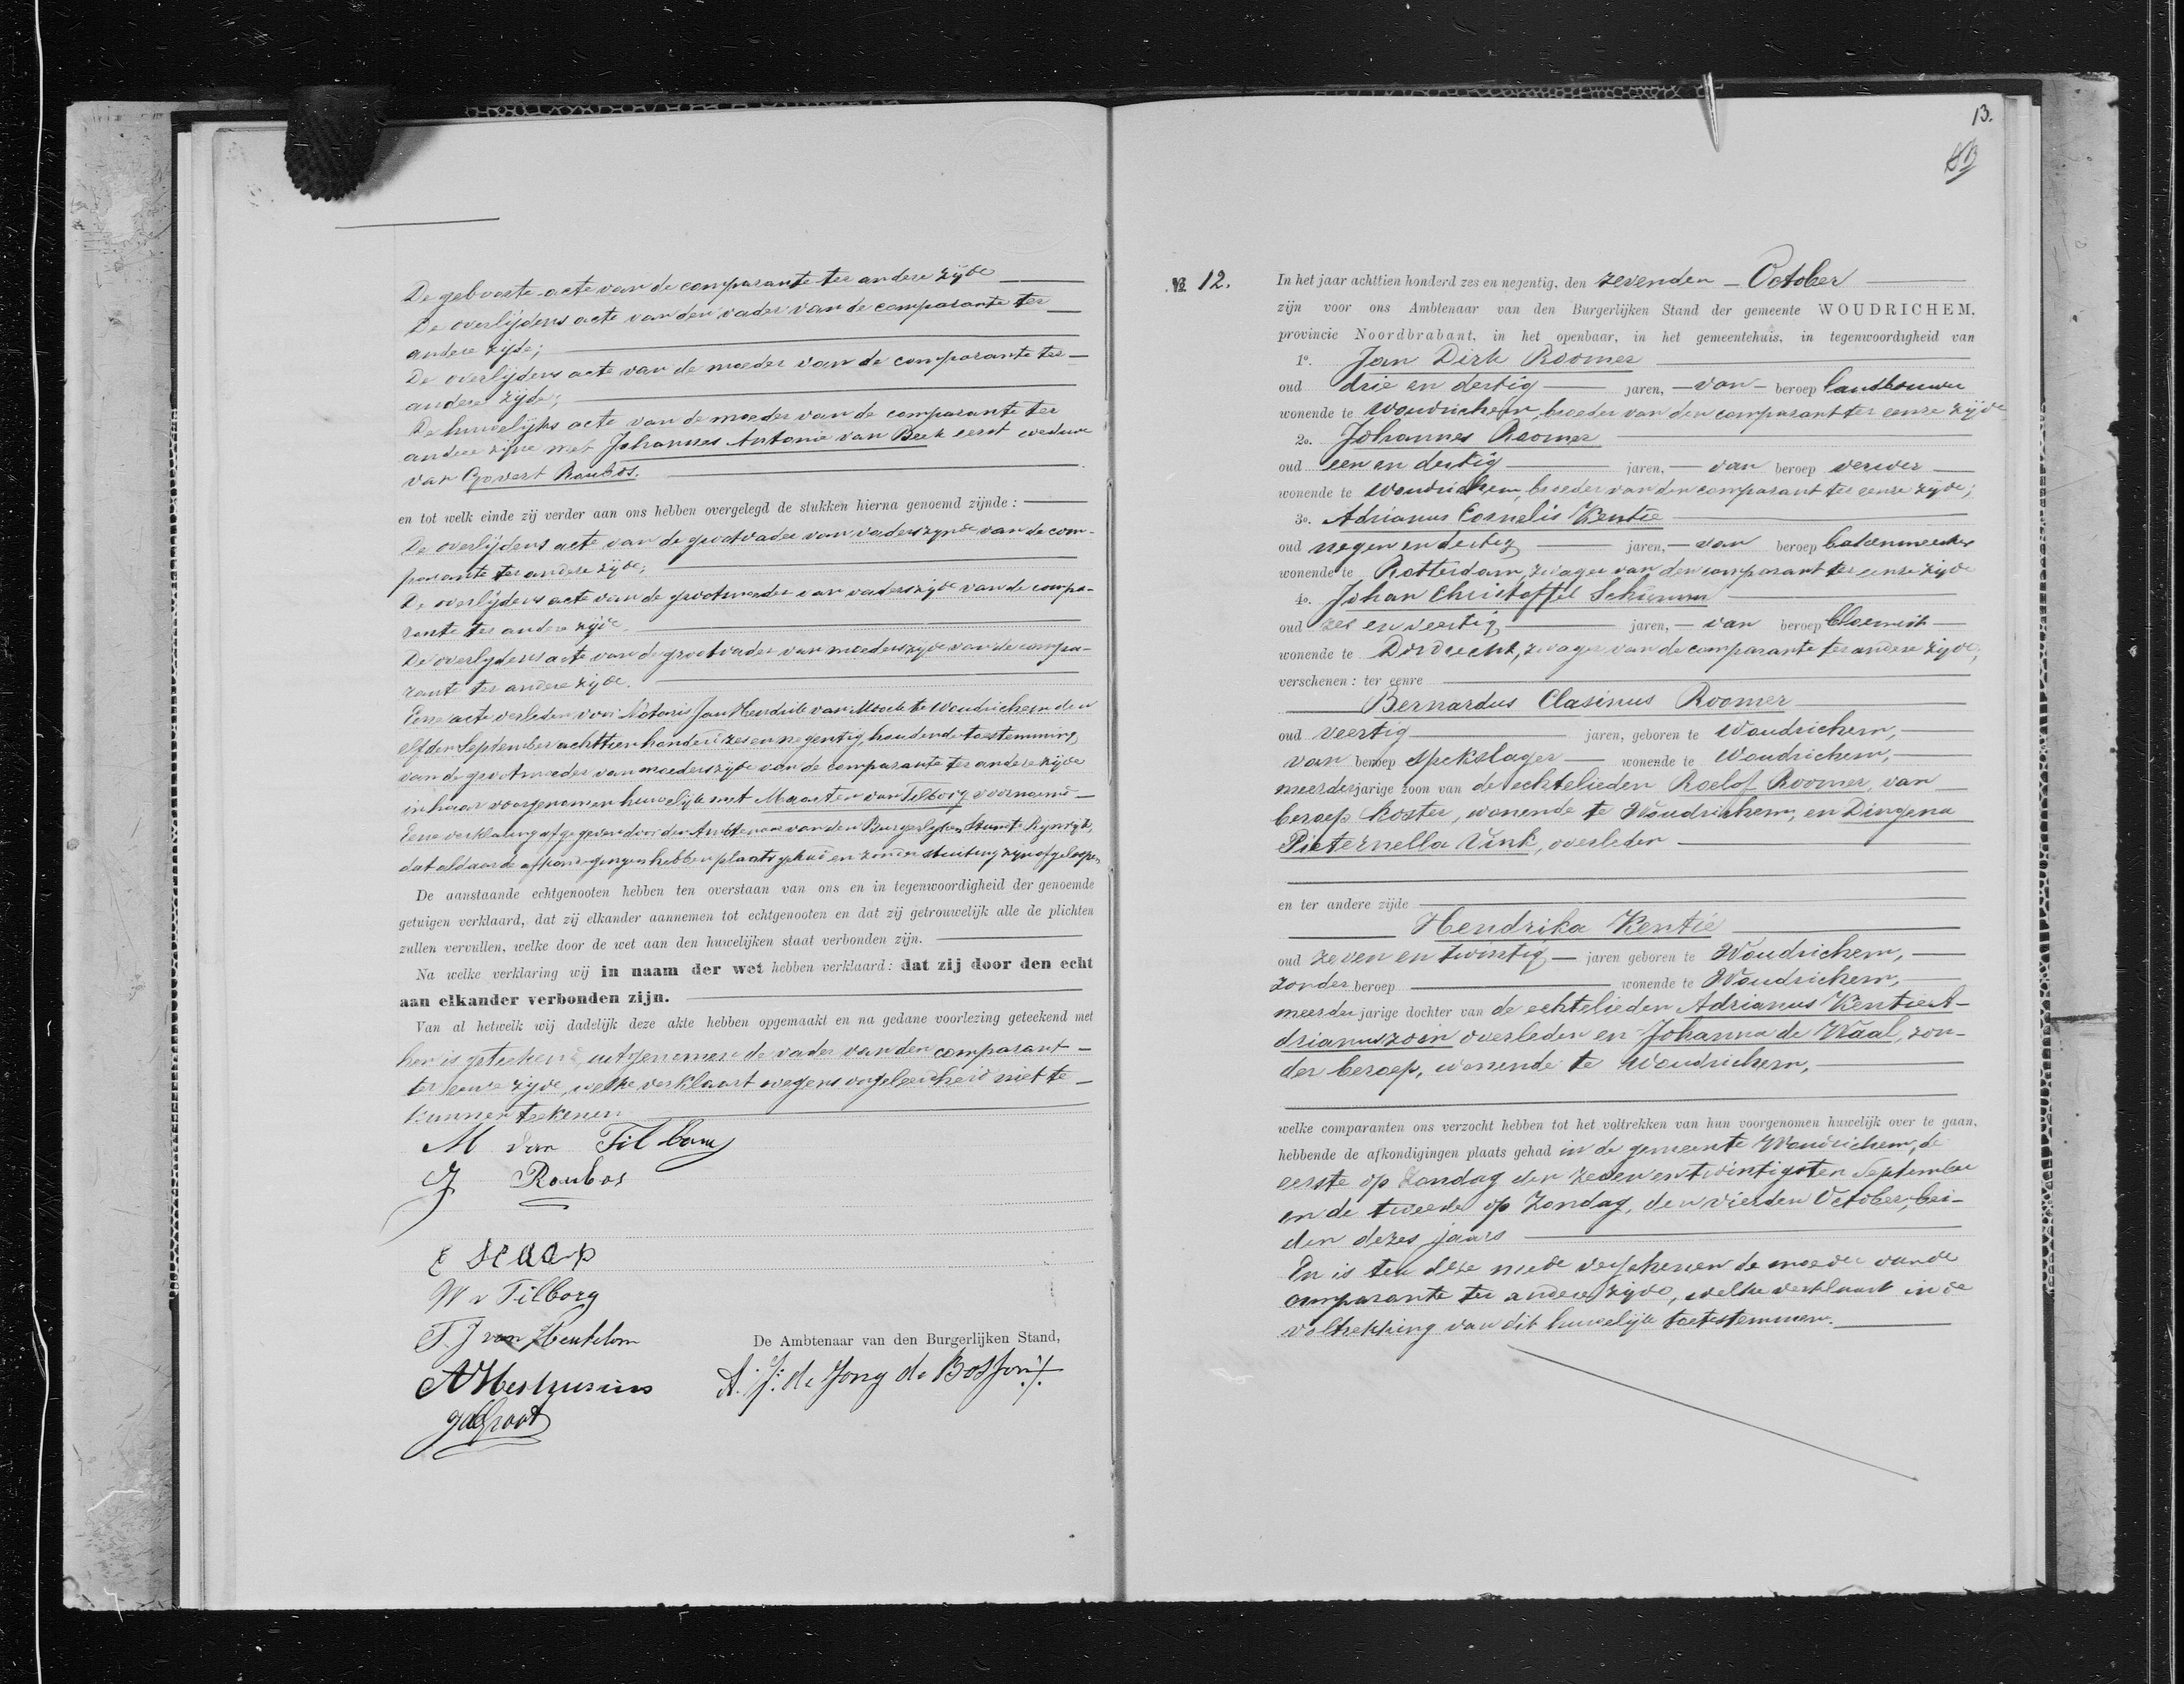 De geboorte-acte van de comparante ter andere zijde
De overlijdens acte van den vader van de comparante ter
andere zijde;
De overlijdens acte van de moeder van de comparante ter
andere zijde;
De huwelijks acte van de moeder van de comparante ter
andere zijde met Johannes Antonie van Beek eerst weduwe
van Govert Roubos.
en tot welk einde zij verder aan ons hebben overgelegd de stukken hierna genoemd zijnde:
De overlijdens acte van de grootvader van vaderszijde van de com-
parante ter andere zijde;
De overlijdens acte van de grootmoeder van vaderszijde van de compa-
rante ter andere zijde.
De overlijdens acte van de grootvader van moederszijde van de compa-
rante ter andere zijde.
Eene acte verleden voor Notaris Jan Hendrik van te Woudrichem den
elfden September achttienhonderd zes en negentig, houdende toestemming
van de grootmoeder van moederszijde van de comparante ter andere zijde
in haar voorgenomen huwelijk met Maarten van Tilborg voornoemd
Eene verklaring afgegeven door den Ambtenaar van den Burgerlijken Stand te Rijswijk,
dat aldaar de afkondigingen hebben plaats gehad en zonder stuiting zijn afgeloopen
De aanstaande echtgenooten hebben ten overstaan van ons en in tegenwoordigheid der genoemde
getuigen verklaard, dat zij elkander aannemen tot echtgenooten en dat zij getrouwelijk alle de plichten
zullen vervullen, welke door de wet aan den huwelijken staat verbonden zijn.
Na welke verklaring wij in naam der wet hebben verklaard: dat zij door den echt
aan elkander verbonden zijn.
Van al hetwelk wij dadelijk deze akte hebben opgemaakt en na gedane voorlezing geteekend met
hen is geteekend, uitgenomen de vader van den comparant
ter eenre zijde, welke verklaart wegens ongeleerdheid niet te
kunnen teekenen
M van Tilborg
J Roubos
W v Tilborg
T. J van Heukelom
De Ambtenaar van den Burgerlijken Stand,
A. J. de Jong de Bosson
JdeGroot
13.
№ 12.
In het jaar achttien honderd zes en negentig, den zevenden - October
zijn voor ons Ambtenaar van den Burgerlijken Stand der gemeente WOUDRICHEM,
provincie Noordbrabant, in het openbaar, in het gemeentehuis, in tegenwoordigheid van
1o. Jan Dirk Roomer
oud drie en dertig jaren, van beroep landbouwer
wonende te Woudrichem, broeder van den comparant ter eenre zijde
2o. Johannes Roomer
oud een en dertig jaren, van beroep verwer
wonende te Woudrichem, broeder van den comparant ter eenre zijde;
3o. Adrianus Cornelis Kentie
oud negen en dertig jaren, van beroep
wonende te Rotterdam, zwager van den comparant ter eenre zijde
4o. Johan Christoffel
oud zes en veertig jaren, van beroep bloemist
wonende te Dordrecht, zwager van de comparante ter andere zijde,
verschenen: ter eenre
Bernardus Clasinus Roomer
oud veertig jaren, geboren te Woudrichem,
van beroep spekslager wonende te Woudrichem,
meerderjarige zoon van de echtelieden Roelof Roomer, van
beroep koster, wonende te Woudrichem, en Dingena
Pieternella Vink, overleden
en ter andere zijde
Hendrika Kentie
oud zeven en twintig jaren geboren te Woudrichem,
zonder beroep wonende te Woudrichem,
meerderjarige dochter van de echtelieden Adrianus Kentie A-
drianuszoon overleden en Johanna de Waal, zon-
der beroep, wonende te Woudrichem,
welke comparanten ons verzocht hebben tot het voltrekken van hun voorgenomen huwelijk over te gaan,
hebbende de afkondigingen plaats gehad in de gemeente Woudrichem, de
eerste op Zondag den zeven en twintigsten September
en de tweede op Zondag, den vierden October, bei-
den dezes jaars
En is ten deze mede verschenen de moeder van de
comparante ter andere zijde, welke verklaart in de
voltrekking van dit huwelijk toetestemmen.